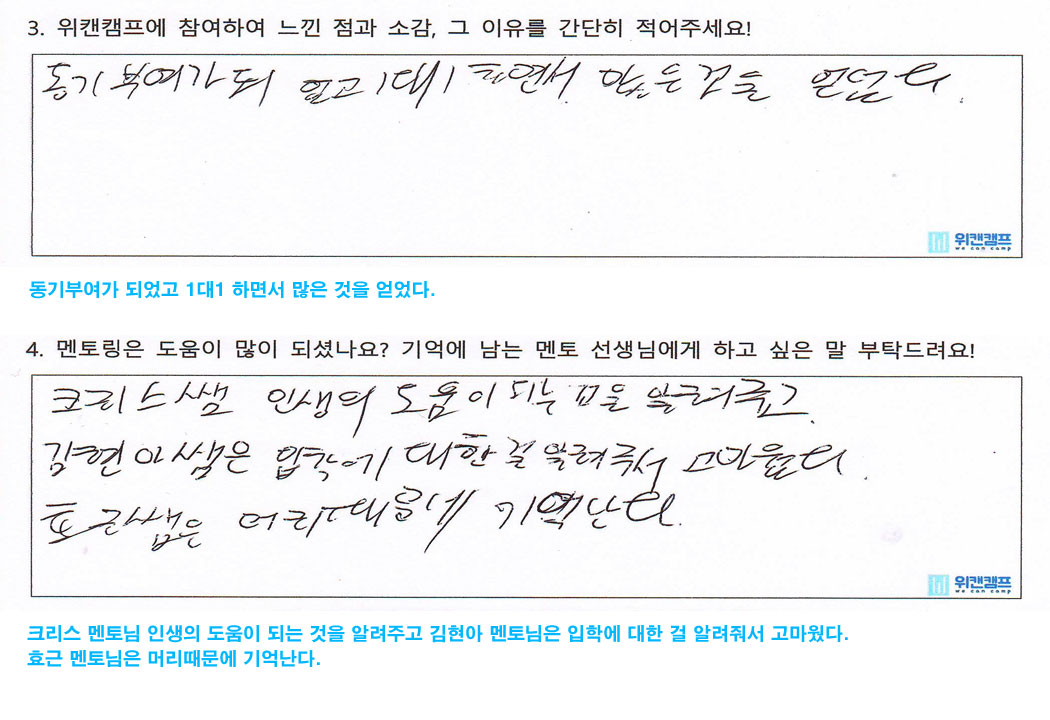 3. 위캔캠프에 참여하여 느낀 점과 소감, 그 이유를 간단히 적어주세요!
동기부여가 되 었고 1대1 하면서 많은 것을 얻었다.
위캔캠프
we can camp
동기부여가 되었고 1대1 하면서 많은 것을 얻었다.
4. 멘토링은 도움이 많이 되셨나요? 기억에 남는 멘토 선생님에게 하고 싶은 말 부탁드려요!
크리스쌤 인생의 도움이 되는 것을 알려주고
김현아쌤은 입학에 대한걸 알려줘서 고마웠다.
효근쌤은 머리때문에 기억난다.
위캔캠프
we can camp
크리스 멘토님 인생의 도움이 되는 것을 알려주고 김현아 멘토님은 입학에 대한 걸 알려줘서 고마웠다.
효근 멘토님은 머리때문에 기억난다.